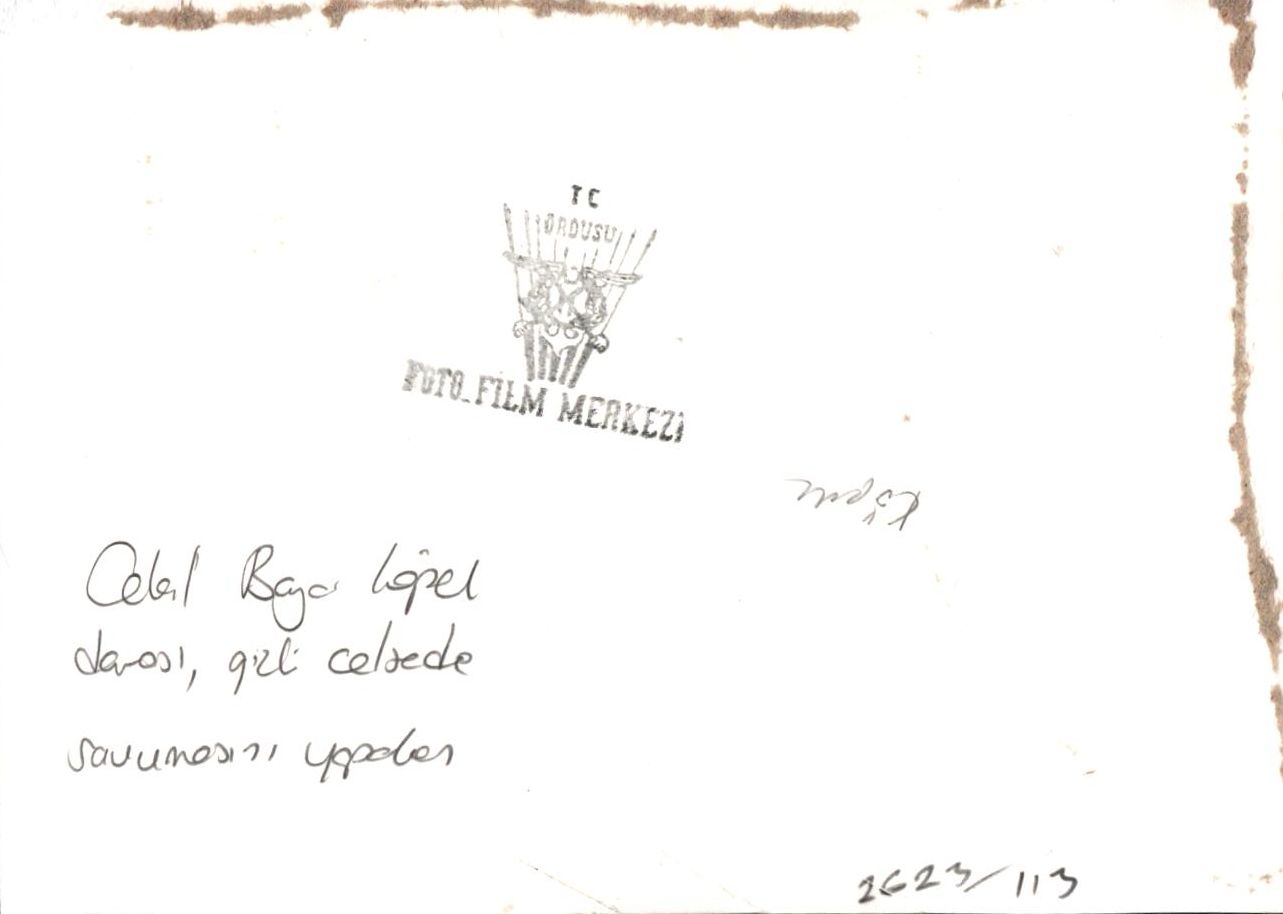 TC
ORDUSU
FOTO-FİLM MERKEZİ
Köpek
Celal Bayar köpek
davası, gizli celsede
savunmasını yaparken
2623/113